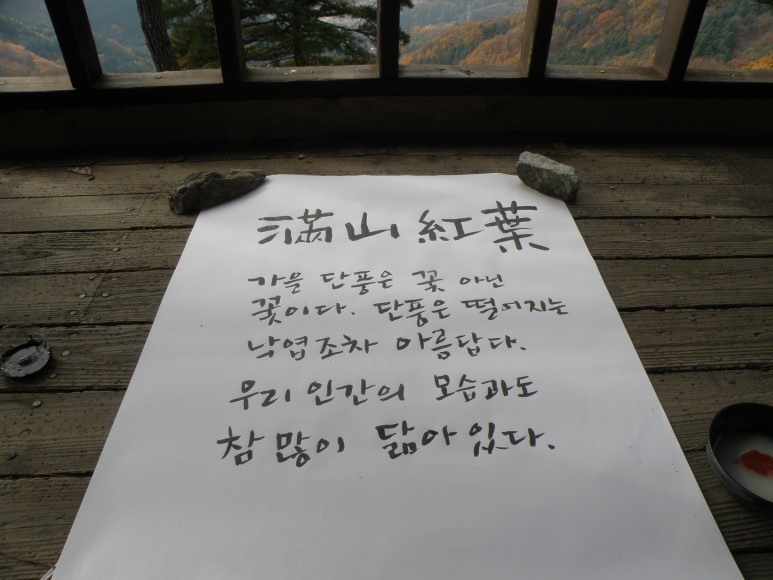 滿山紅葉
가을 단풍은 꽃 아닌
꽃이다. 단풍은 떨어지는
낙엽조차 아름답다.
우리 인간의 모습과도
참 많이 닮아 있다.